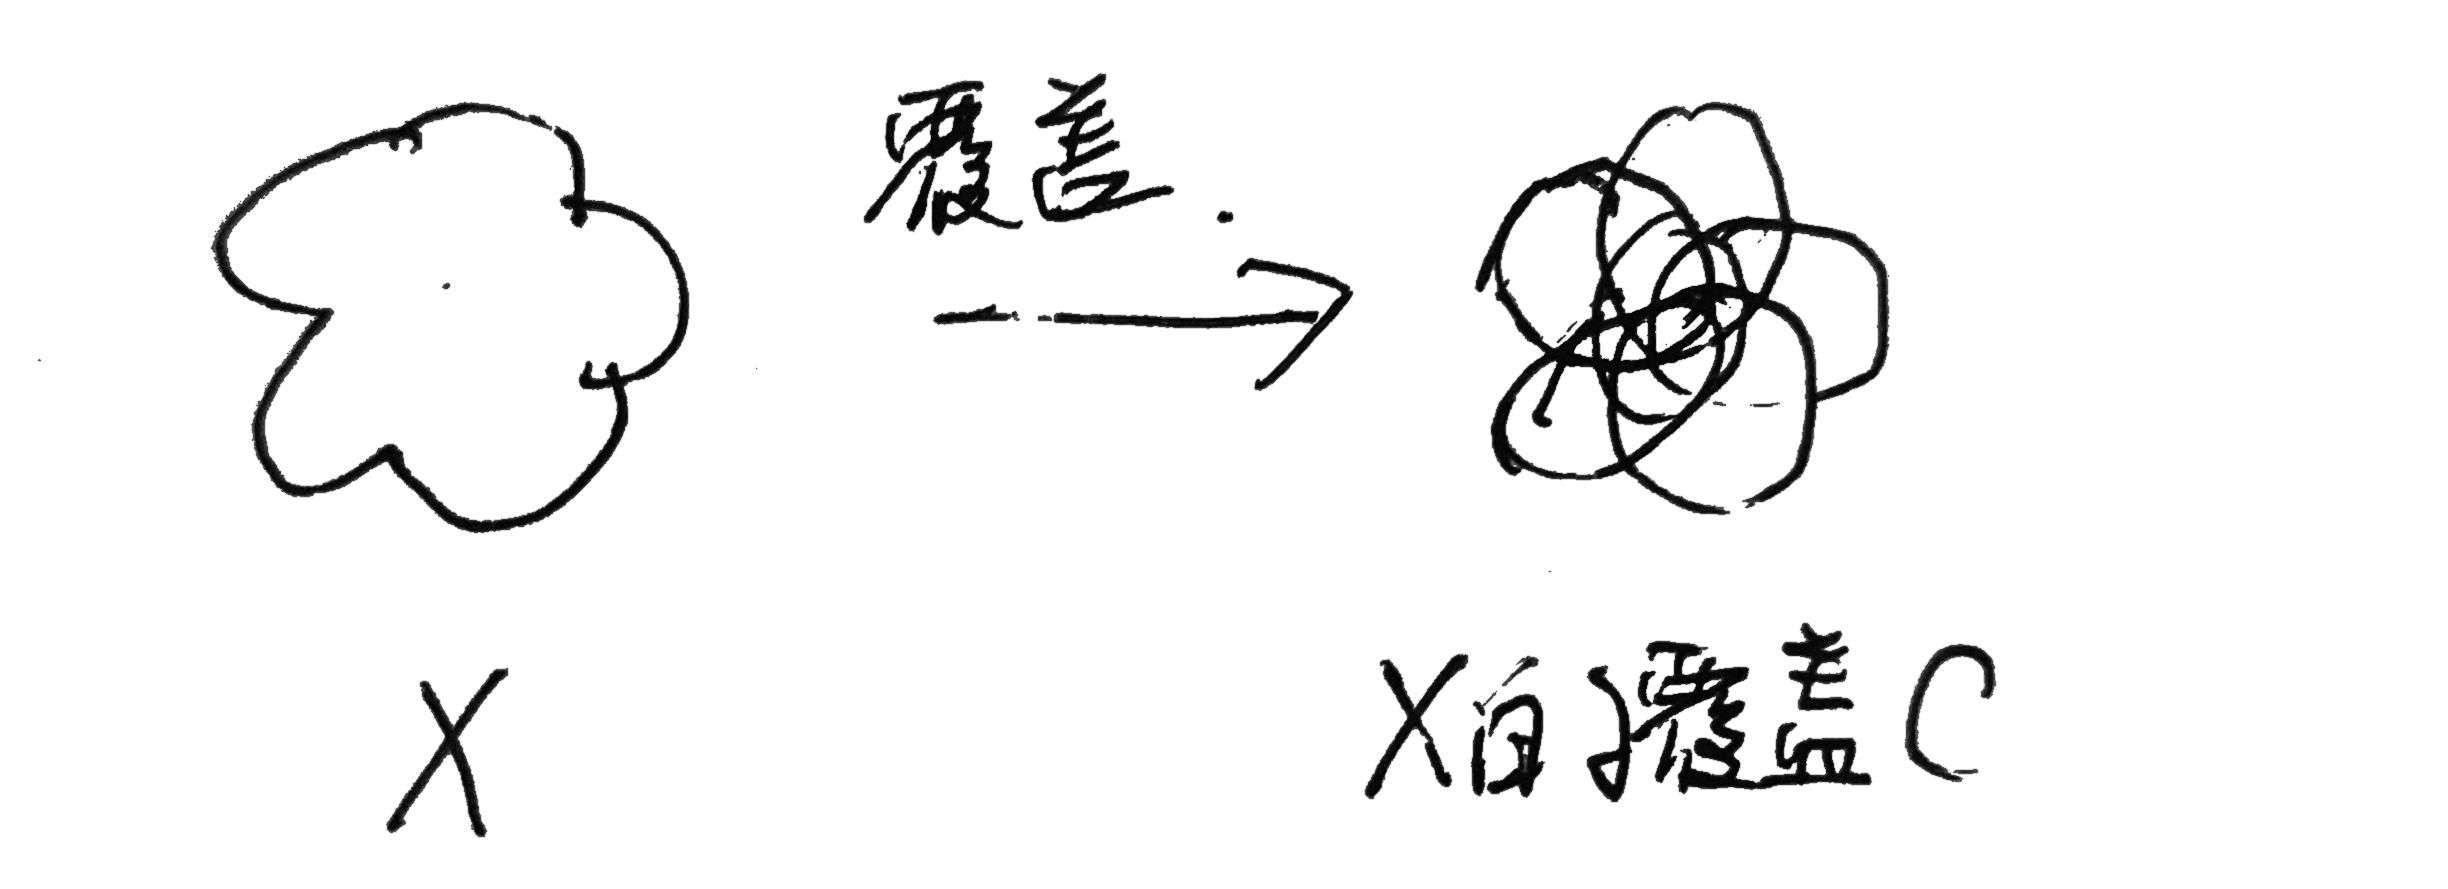 覆盖.
X
X的覆盖C